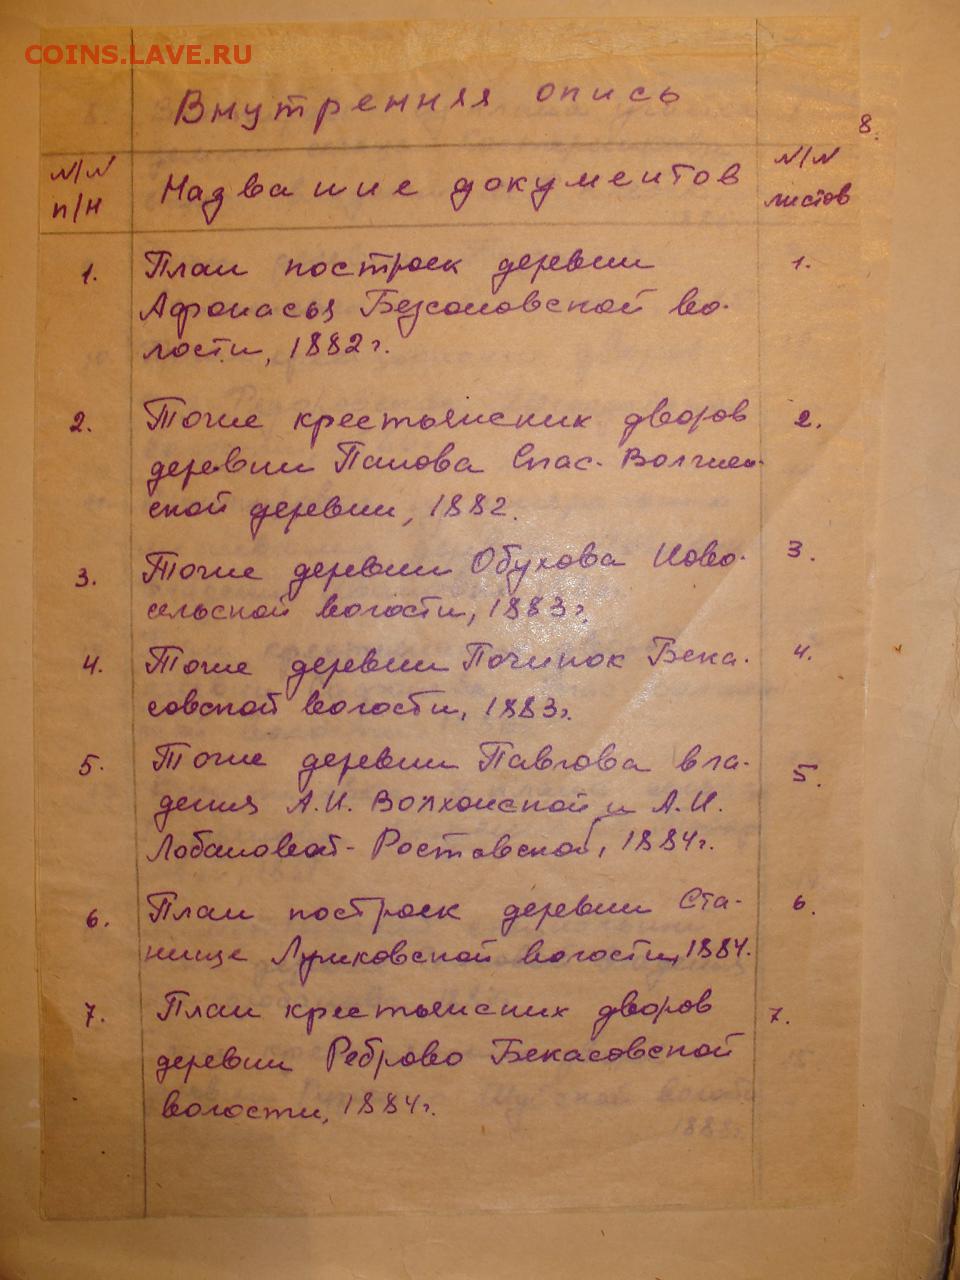 COINS.LAVE.RU
Внутренняя опись
8.
N/N Название документов N/N
п/н листов
1. План построек деревни 1.
Афонасья Безсоновской во-
лости, 1882 г.
2. Тоже крестьянских дворов 2.
деревни Панова Спас-Волжен-
ской деревни, 1882.
3. Тоже деревни Обухова Ново- 3.
сельской волости, 1883 г.
4. Тоже деревни Починок Бека- 4.
совской волости, 1883 г.
5. Тоже деревни Павлова вла- 5.
дения А.И. Волконской и Л.И.
Лобановой-Ростовской, 1884 г.
6. План построек деревни Ста- 6.
нище Луриковской волости, 1884.
7. План крестьянских дворов 7.
деревни Реброво Бекасовской
волости, 1884 г.